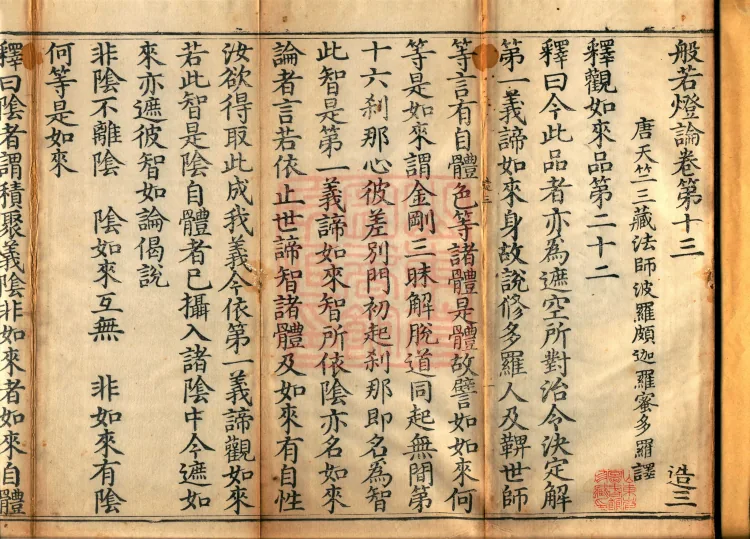 般若燈論卷第十三　造三
唐天竺三藏法師波羅頗迦羅蜜多羅譯
釋觀如來品第二十二
釋曰今此品者亦為遮空所對治令決定解
第一義諦如來身故說修多羅人及鞞世師
等言有自體色等諸體是體故譬如如來何
等是如來謂金剛三昧解脫道同起無間第
十六剎那心彼差別門初起剎那即名為智
此智是第一義諦如來智所依陰亦名如來
論者言若依止世諦智諸體及如來有自性
汝欲得取此成我義今依第一義諦觀如來
若此智是陰自體者已攝入諸陰中今遮如
來亦遮彼智如論偈說
非陰不離陰　陰如來互無　非如來有陰
何等是如來
釋曰陰者謂積聚義陰非如來者如來自體